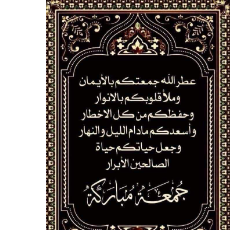 عطر الله جمعتكم بالأيمان
وملأ قلوبكم بالانوار
وحفظكم من كل الاخطار
وأسعدكم مادام الليل والنهار
وجعل حياتكم حياة
الصالحين الأبرار
جمعة مباركة